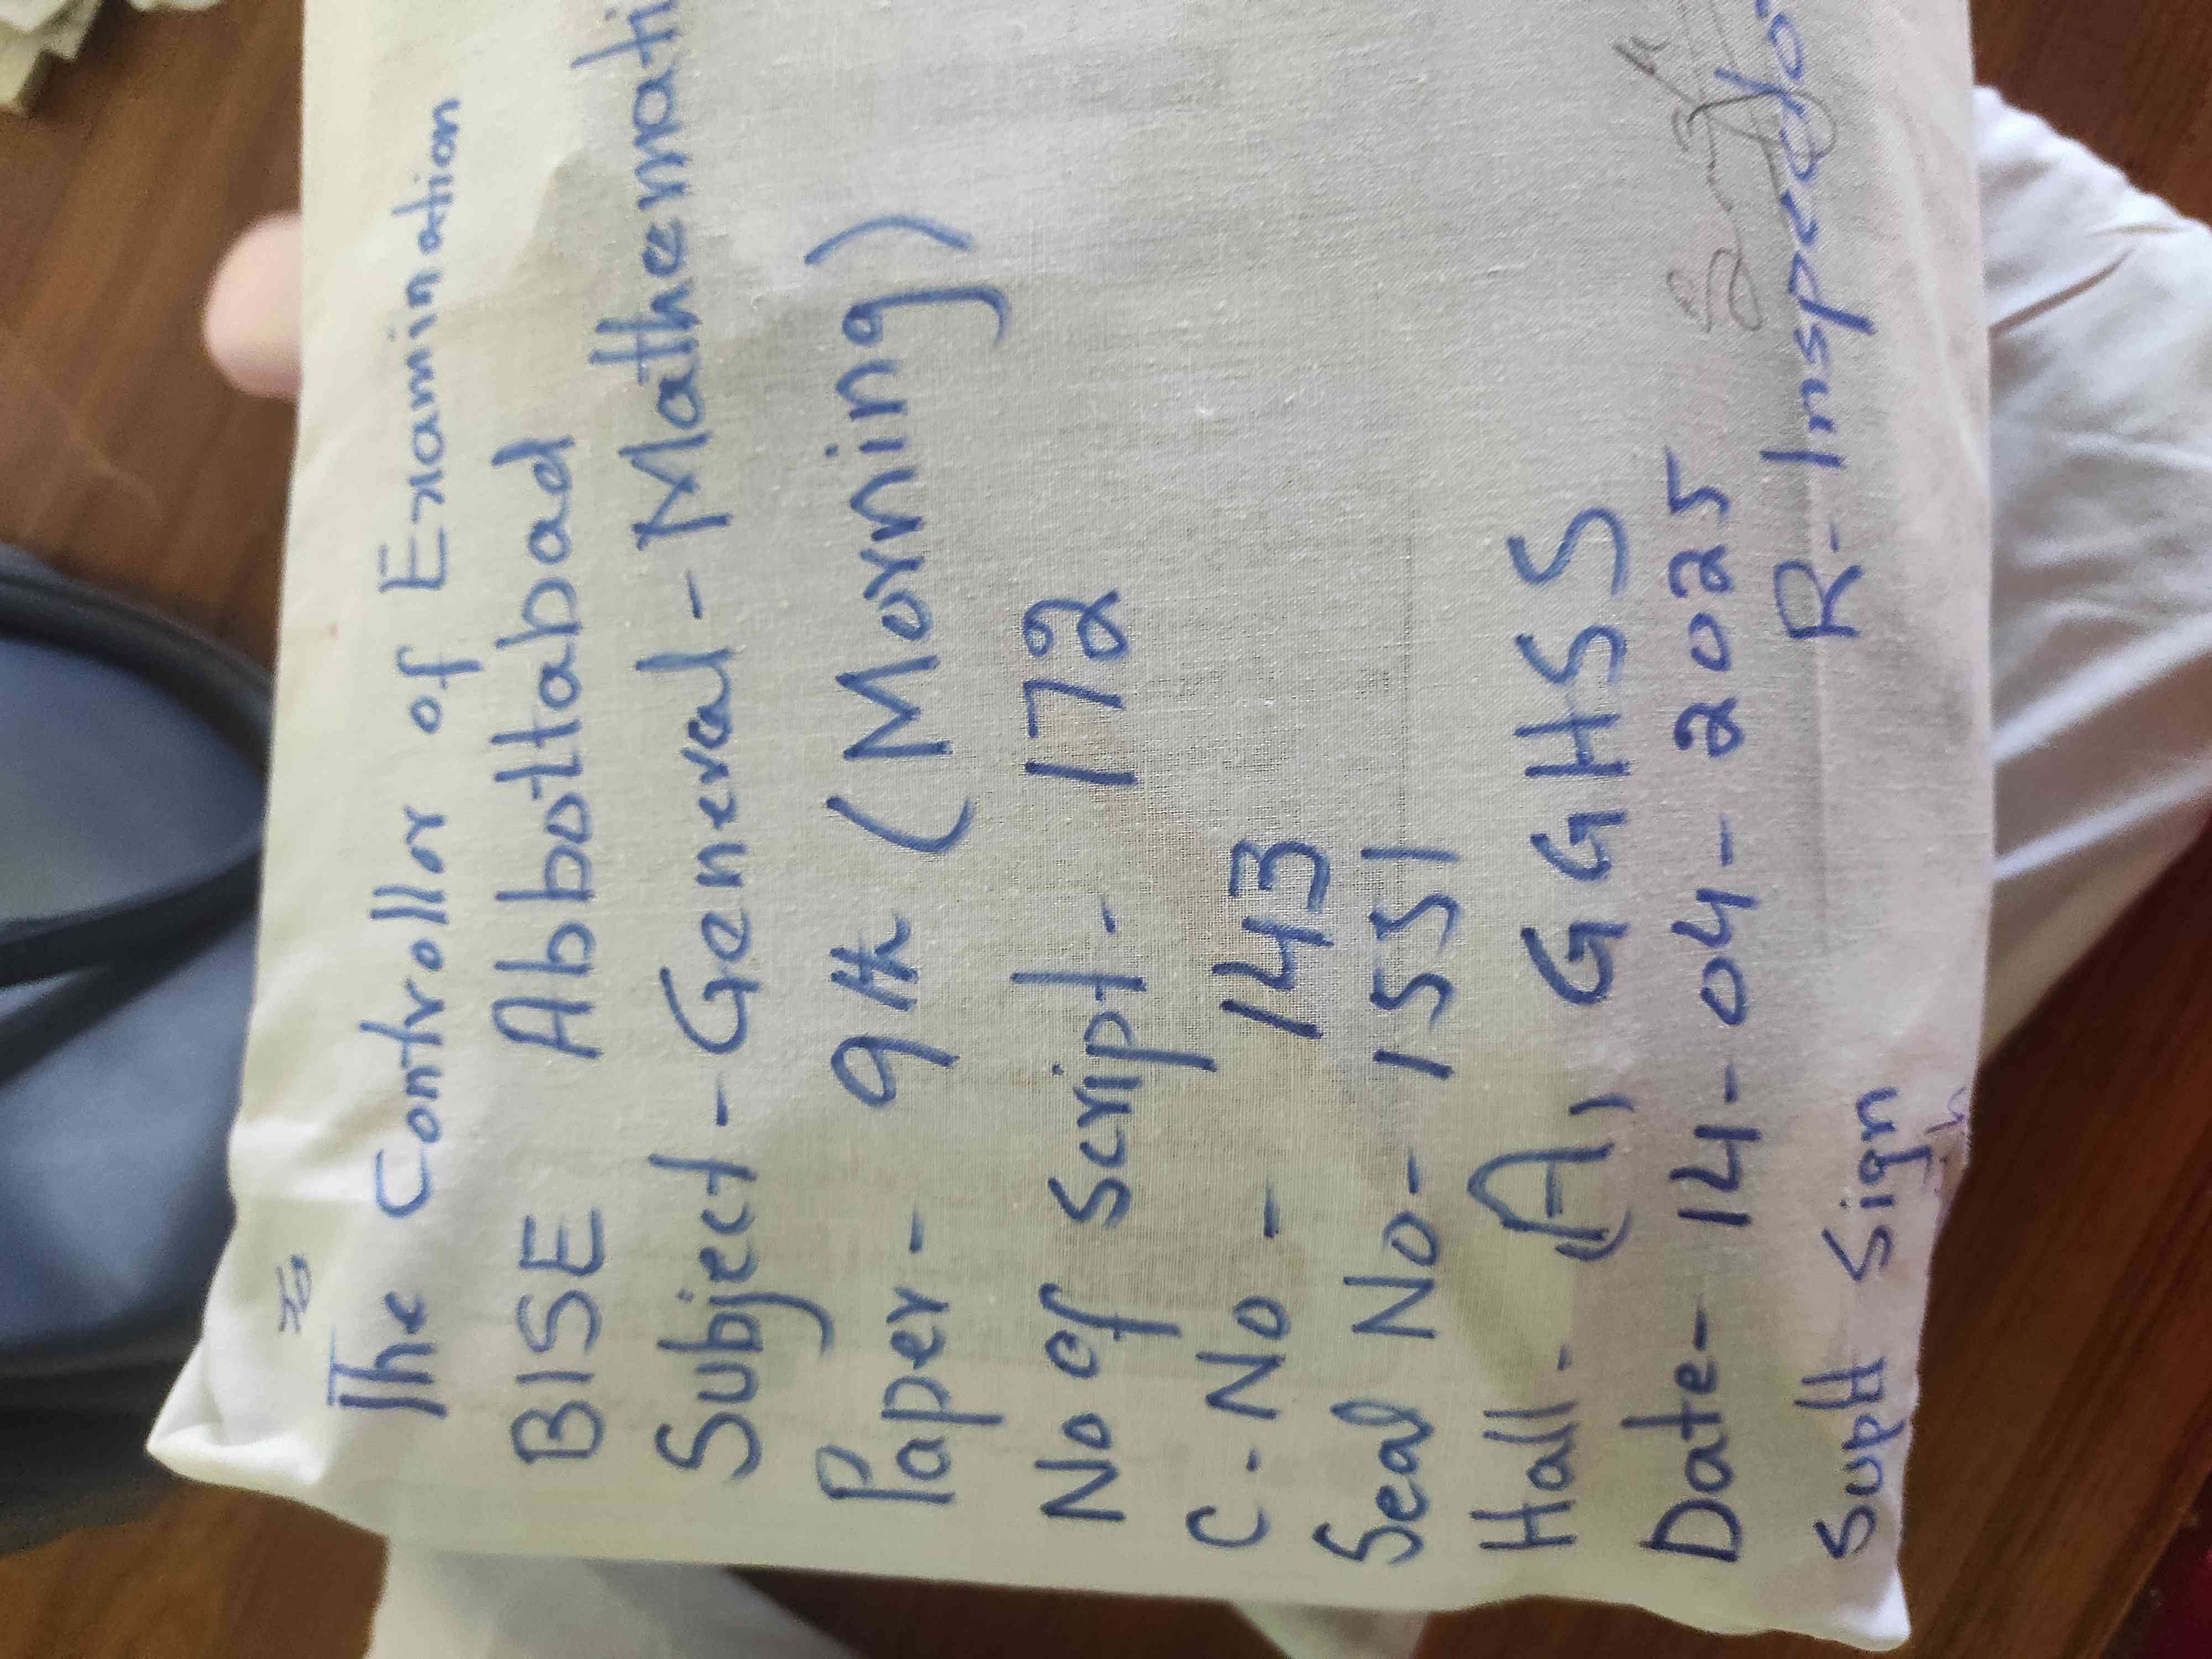 To
The Controllor of Examination
BISE Abbottabad
Subject - General - Mathemati
Paper - 9th (Morning)
No of Script - 172
C - No - 143
Seal No - 1551
Hall - A, GGHSS
Date - 14 - 04 - 2025
Supdt Sign R - Inspector